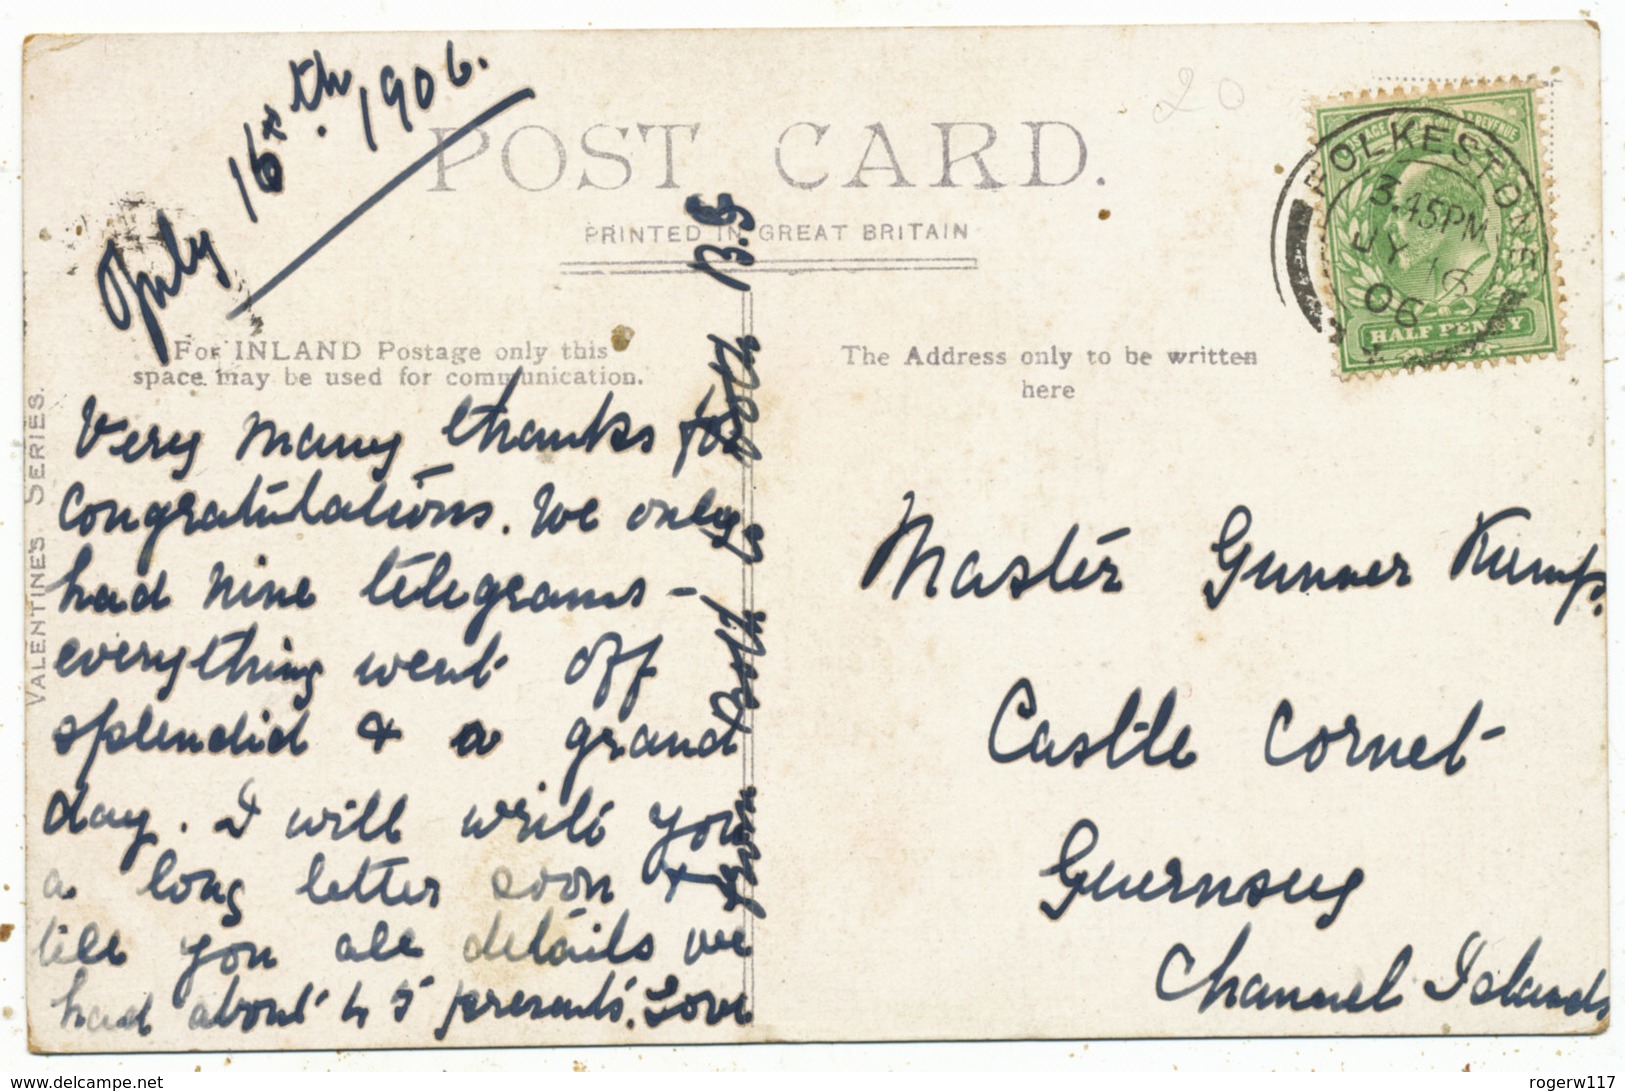 July 16th. 1906.
POST CARD.
PRINTED IN GREAT BRITAIN
For INLAND Postage only this
space may be used for communication.
The Address only to be written
here
VALENTINE'S SERIES.
20
FOLKESTONE
3.45PM
JY 16
06
POSTAGE & REVENUE
HALF PENNY
Very many thanks for
congratulations. We only
had nine telegrams -
everything went off
splendid & a grand
day. I will write you
a long letter soon &
tell you all details we
had about 45 presents. Love
from both to both B.G
Master Gunner Kump.
Castle Cornet
Guernsey
Channel Islands
www.delcampe.net
rogerw117